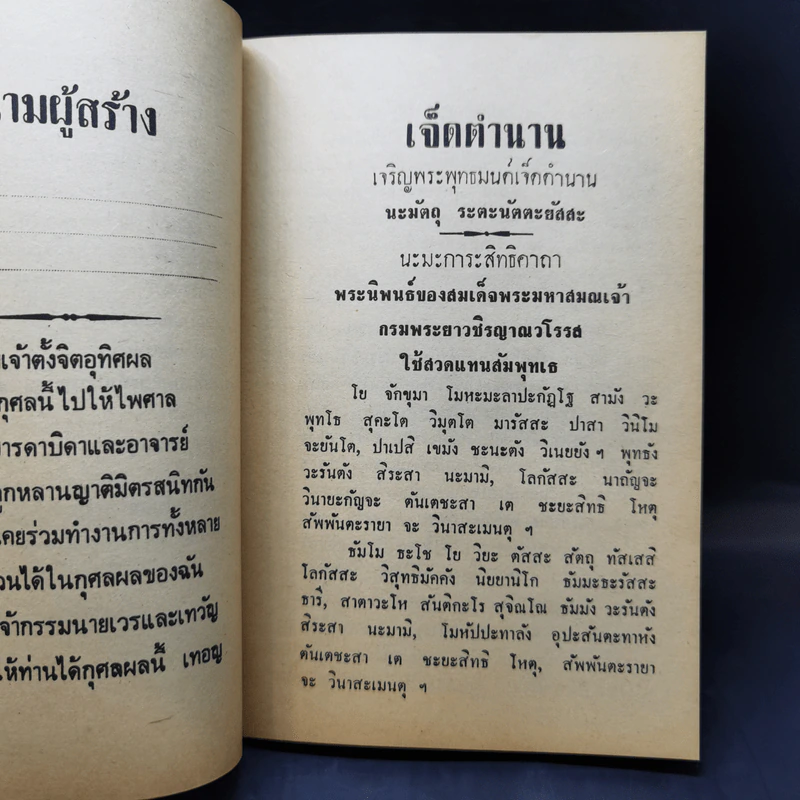 ามผู้สร้าง
เจ้าตั้งจิตอุทิศผล
กุศลนี้ ไปให้ไพศาล
ารดาบิดาและอาจารย์
ลูกหลานญาติมิตรสนิทกัน
เคยร่วมทำงานการทั้งหลาย
วนได้ในกุศลผลของฉัน
จ้ากรรมนายเวรและเทวัญ
ให้ท่านได้กุศลผลนี้ เทอญ
เจ็ดตำนาน
เจริญพระพุทธมนต์เจ็ดตำนาน
นะมัตถุ ระตะนัตตะยัสสะ
นะมะการะสิทธิคาถา
พระนิพนธ์ของสมเด็จพระมหาสมณเจ้า
กรมพระยาวชิรญาณวโรรส
ใช้สวดแทนสัมพุทเธ
โย จักขุมา โมหะมะลาปะกัฏโฐ สามัง วะ
พุทโธ สุคะโต วิมุตโต มารัสสะ ปาสา วินิโม
จะยันโต, ปาเปสิ เขมัง ชะนะตัง วิเนยยัง ฯ พุทธัง
วะรันตัง สิระสา นะมามิ, โลกัสสะ นาถัญจะ
วินายะกัญจะ ตันเตชะสา เต ชะยะสิทธิ โหตุ
สัพพันตะรายา จะ วินาสะเมนตุ ฯ
ธัมโม ธะโช โย วิยะ ตัสสะ สัตถุ ทัสเสสิ
โลกัสสะ วิสุทธิมัคคัง นิยยานิโก ธัมมะธะรัสสะ
ธารี, สาตาวะโห สันติกะโร สุจิณโณ ธัมมัง วะรันตัง
สิระสา นะมามิ, โมหัปปะทาลัง อุปะสันตะทาหัง
ตันเตชะสา เต ชะยะสิทธิ โหตุ, สัพพันตะรายา
จะ วินาสะเมนตุ ฯ